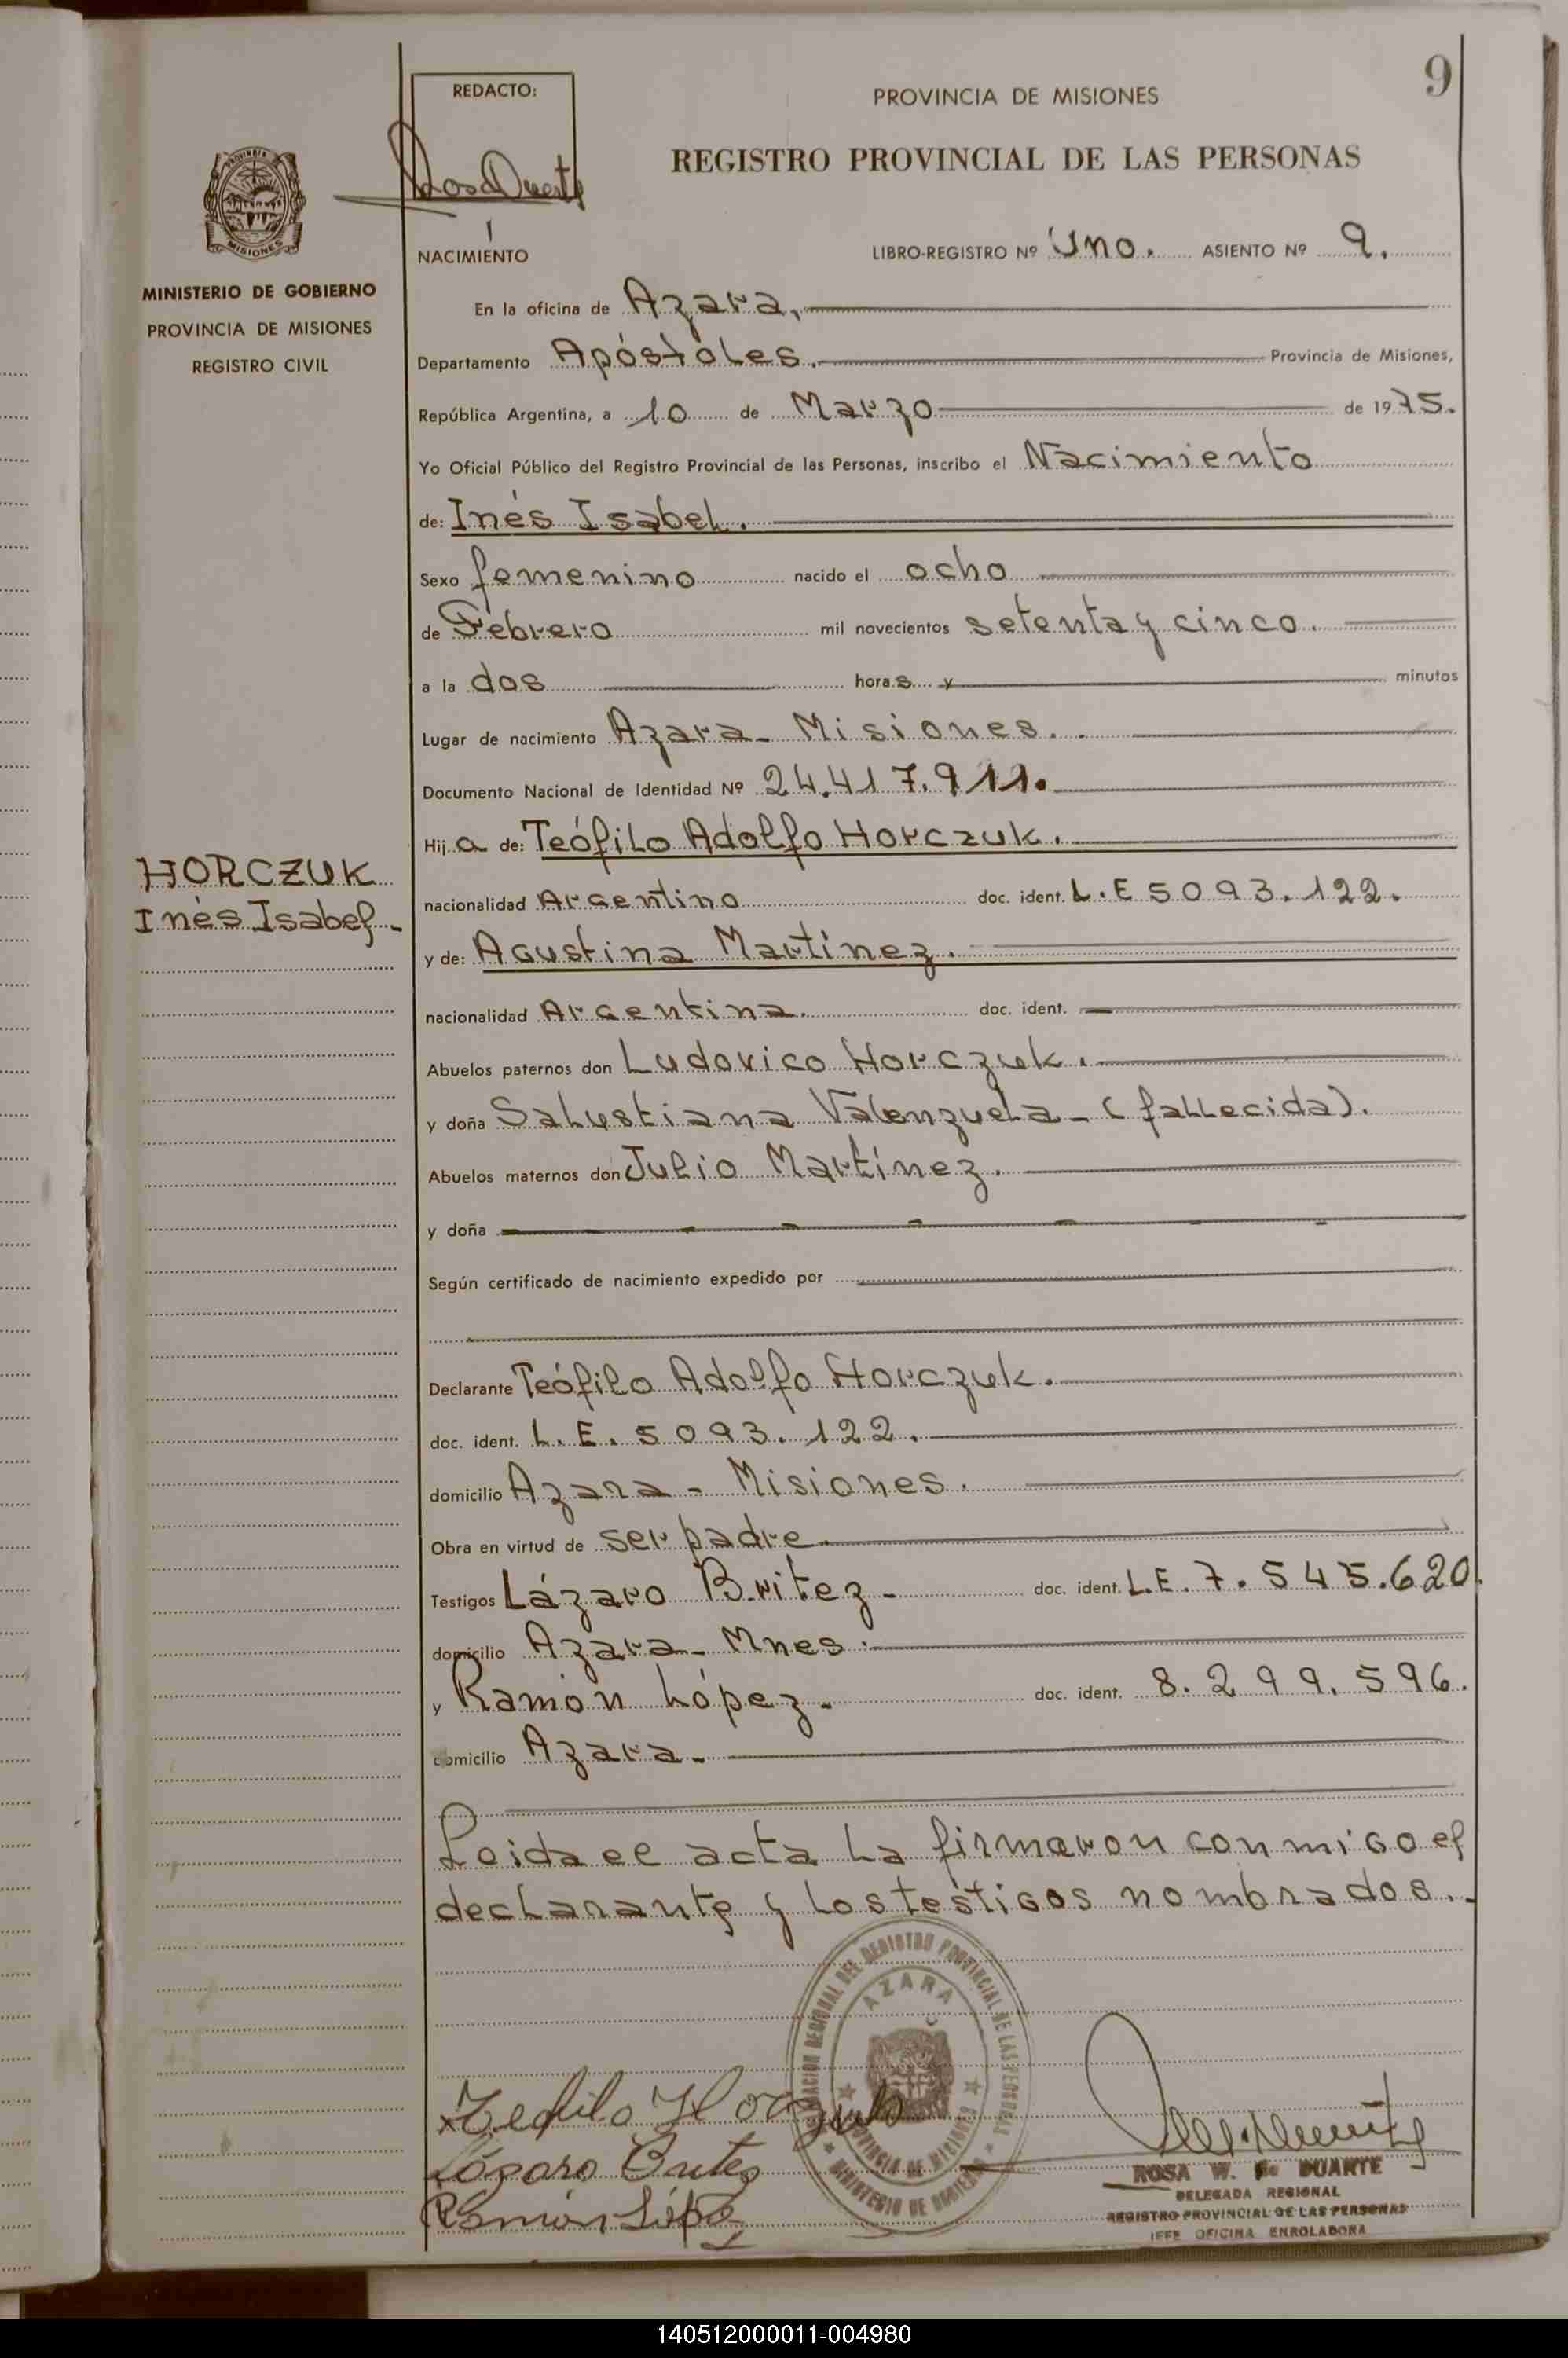 9
REDACTO:
Rosa Duarte
PROVINCIA DE MISIONES
REGISTRO PROVINCIAL DE LAS PERSONAS
PROVINCIA
MISIONES
MINISTERIO DE GOBIERNO
PROVINCIA DE MISIONES
REGISTRO CIVIL
NACIMIENTO LIBRO-REGISTRO Nº Uno. ASIENTO Nº 9.
En la oficina de Azara,
Departamento Apóstoles. Provincia de Misiones,
República Argentina, a 10 de Marzo de 1975.
Yo Oficial Público del Registro Provincial de las Personas, inscribo el Nacimiento
de: Inés Isabel.
Sexo femenino nacido el ocho
de Febrero mil novecientos setenta y cinco.
a la dos horas y minutos
Lugar de nacimiento Azara - Misiones.
Documento Nacional de Identidad Nº 24.417.911.
HORCZUK
Inés Isabel.
Hij a de: Teófilo Adolfo Horczuk.
nacionalidad Argentino doc. ident. L.E 5093.122.
y de: Agustina Martínez.
nacionalidad Argentina. doc. ident.
Abuelos paternos don Ludovico Horczuk.
y doña Salustiana Valenzuela - (fallecida).
Abuelos maternos don Julio Martínez.
y doña
Según certificado de nacimiento expedido por
Declarante Teófilo Adolfo Horczuk.
doc. ident. L.E. 5093.122.
domicilio Azara - Misiones.
Obra en virtud de ser padre.
Testigos Lázaro Britez - doc. ident. L.E. 7.545.620.
domicilio Azara - Mnes.
y Ramón López. doc. ident. 8.299.596.
domicilio Azara.
Leida el acta la firmaron conmigo el
declarante y los testigos nombrados.
REGIONAL DEL REGISTRO PROVINCIAL DE LAS PERSONAS
AZARA
PROVINCIA DE MISIONES
MINISTERIO DE GOBIERNO
Teofilo Horczuk
Lázaro Britez
Ramón López
ROSA W. de DUARTE
DELEGADA REGIONAL
REGISTRO PROVINCIAL DE LAS PERSONAS
JEFE OFICINA ENROLADORA
140512000011-004980